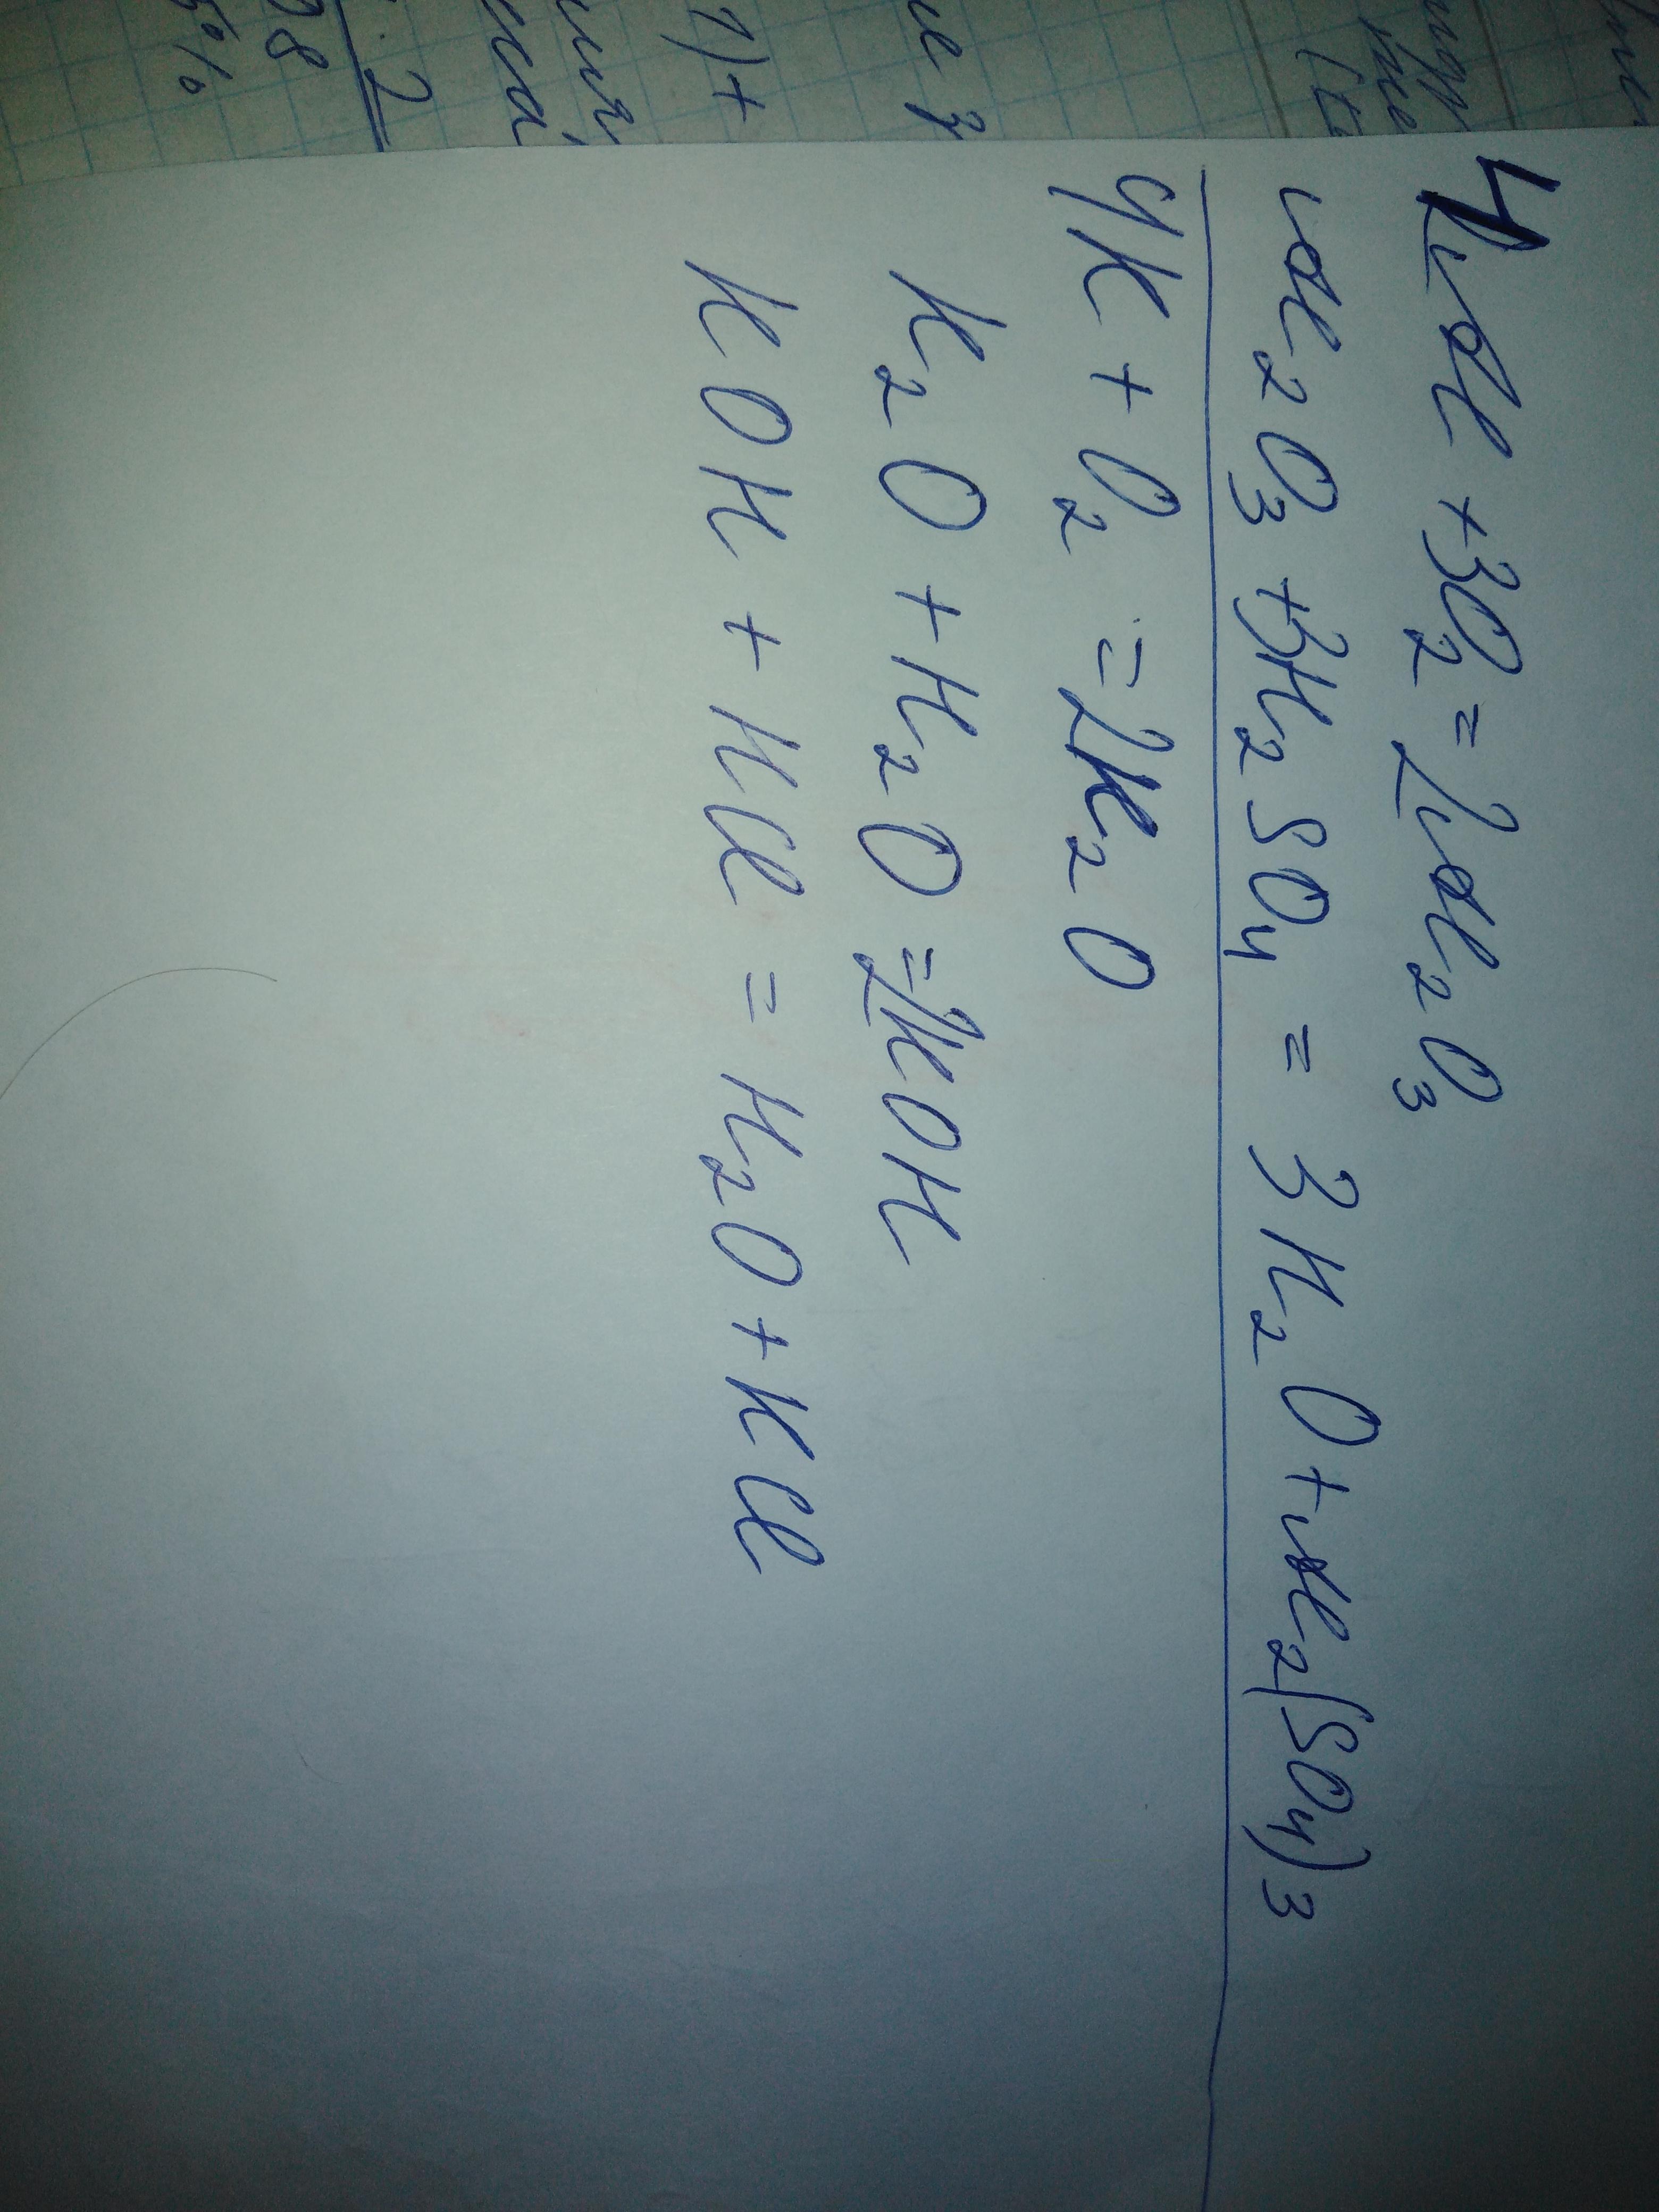 4Al + 3O₂ = 2Al₂O₃
Al₂O₃ + 3H₂SO₄ = 3H₂O + Al₂(SO₄)₃
4K + O₂ = 2K₂O
K₂O + H₂O = 2KOH
KOH + HCl = H₂O + KCl
1)+
2
5%